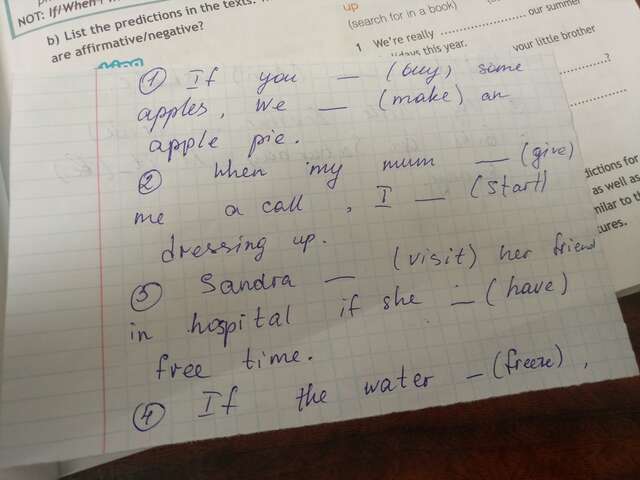 NOT: If/When I
b) List the predictions in the texts.
are affirmative/negative?
up
(search for in a book)
1 We're really .................. our summer
this year.
your little brother
..................?
dictions for
as well as
milar to th
tures.
① If you — (buy) some
apples, we — (make) an
apple pie.
② When my mum — (give)
me a call, I — (start)
dressing up.
③ Sandra — (visit) her friend
in hospital if she — (have)
free time.
④ If the water — (freeze),